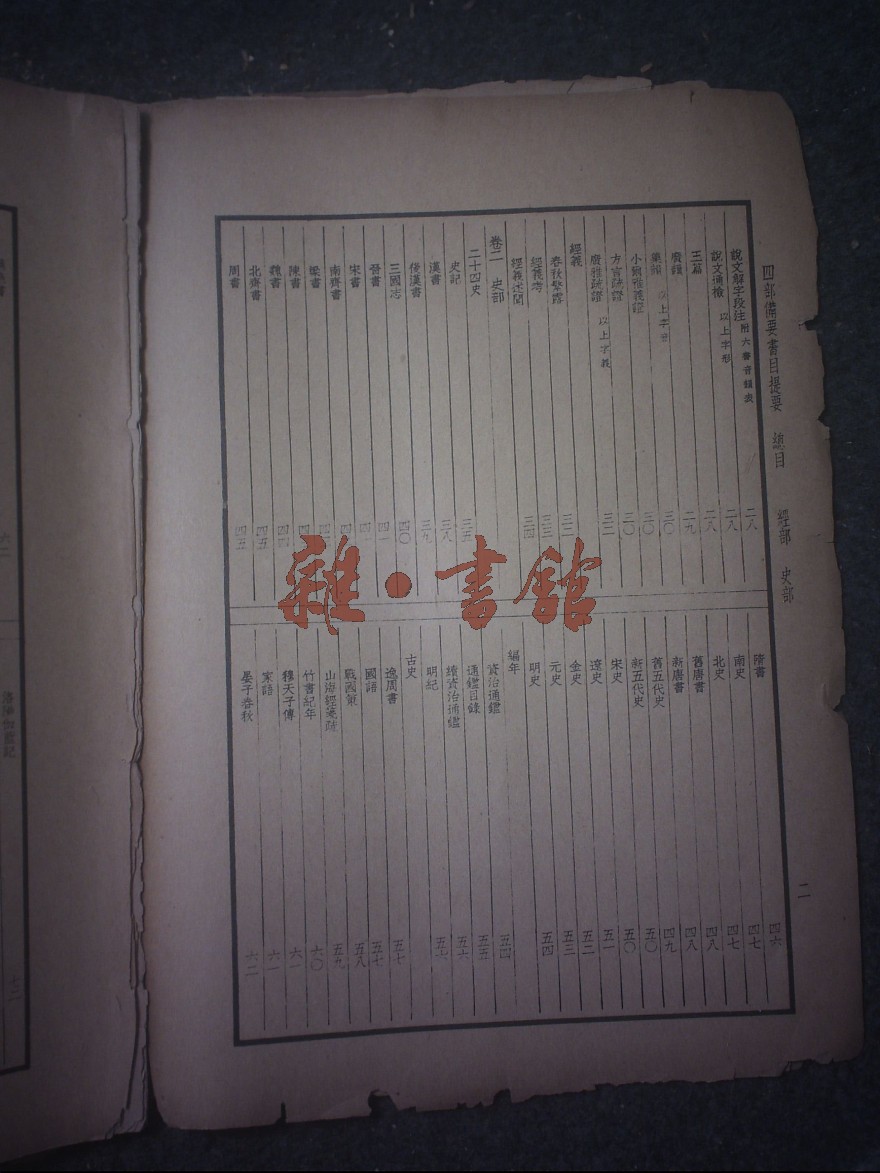 四部備要書目提要 總目 經部 史部
二
說文解字段注 附六書音韻表 二八
說文通檢 以上字形 二八
玉篇 二九
廣韻 三〇
集韻 以上字音 三〇
小爾雅義證 三〇
方言疏證 三一
廣雅疏證 以上字義
經義 三二
春秋繁露 三三
經義考 三四
經義述聞
卷二 史部
二十四史 三五
史記 三八
漢書 三九
後漢書 四〇
三國志 四一
晉書
宋書
南齊書
梁書
陳書 四四
魏書
北齊書 四五
周書 四五
隋書 四六
南史 四七
北史 四八
舊唐書 四八
新唐書 四九
舊五代史 五〇
新五代史 五〇
宋史 五一
遼史 五二
金史 五三
元史 五四
明史
編年 五四
資治通鑑 五五
通鑑目錄 五六
續資治通鑑 五六
明紀
古史 五七
逸周書 五七
國語 五八
戰國策 五九
山海經箋疏 六〇
竹書紀年 六一
穆天子傳 六一
家語 六二
晏子春秋
雜·書館